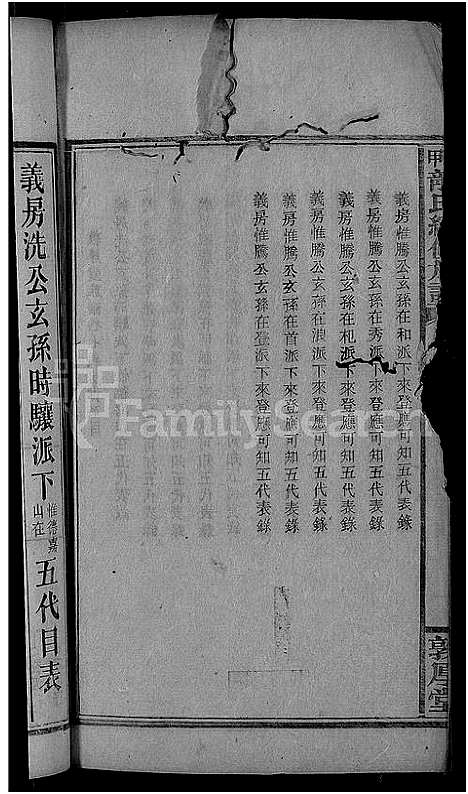 義房惟騰公玄孫在和派下來登應可知五代表錄
義房惟騰公玄孫在秀派下來登應可知五代表錄
義房惟騰公玄孫在杞派下來登應可知五代表錄
義房惟騰公玄孫在派下來登應可知五代表錄
義房惟騰公玄孫在首派下來登應可知五代表錄
義房惟騰公玄孫在登派下來登應可知五代表錄
敦道堂
義房洗公玄孫時驤派下惟德嘉山在五代目表
FamilySearch